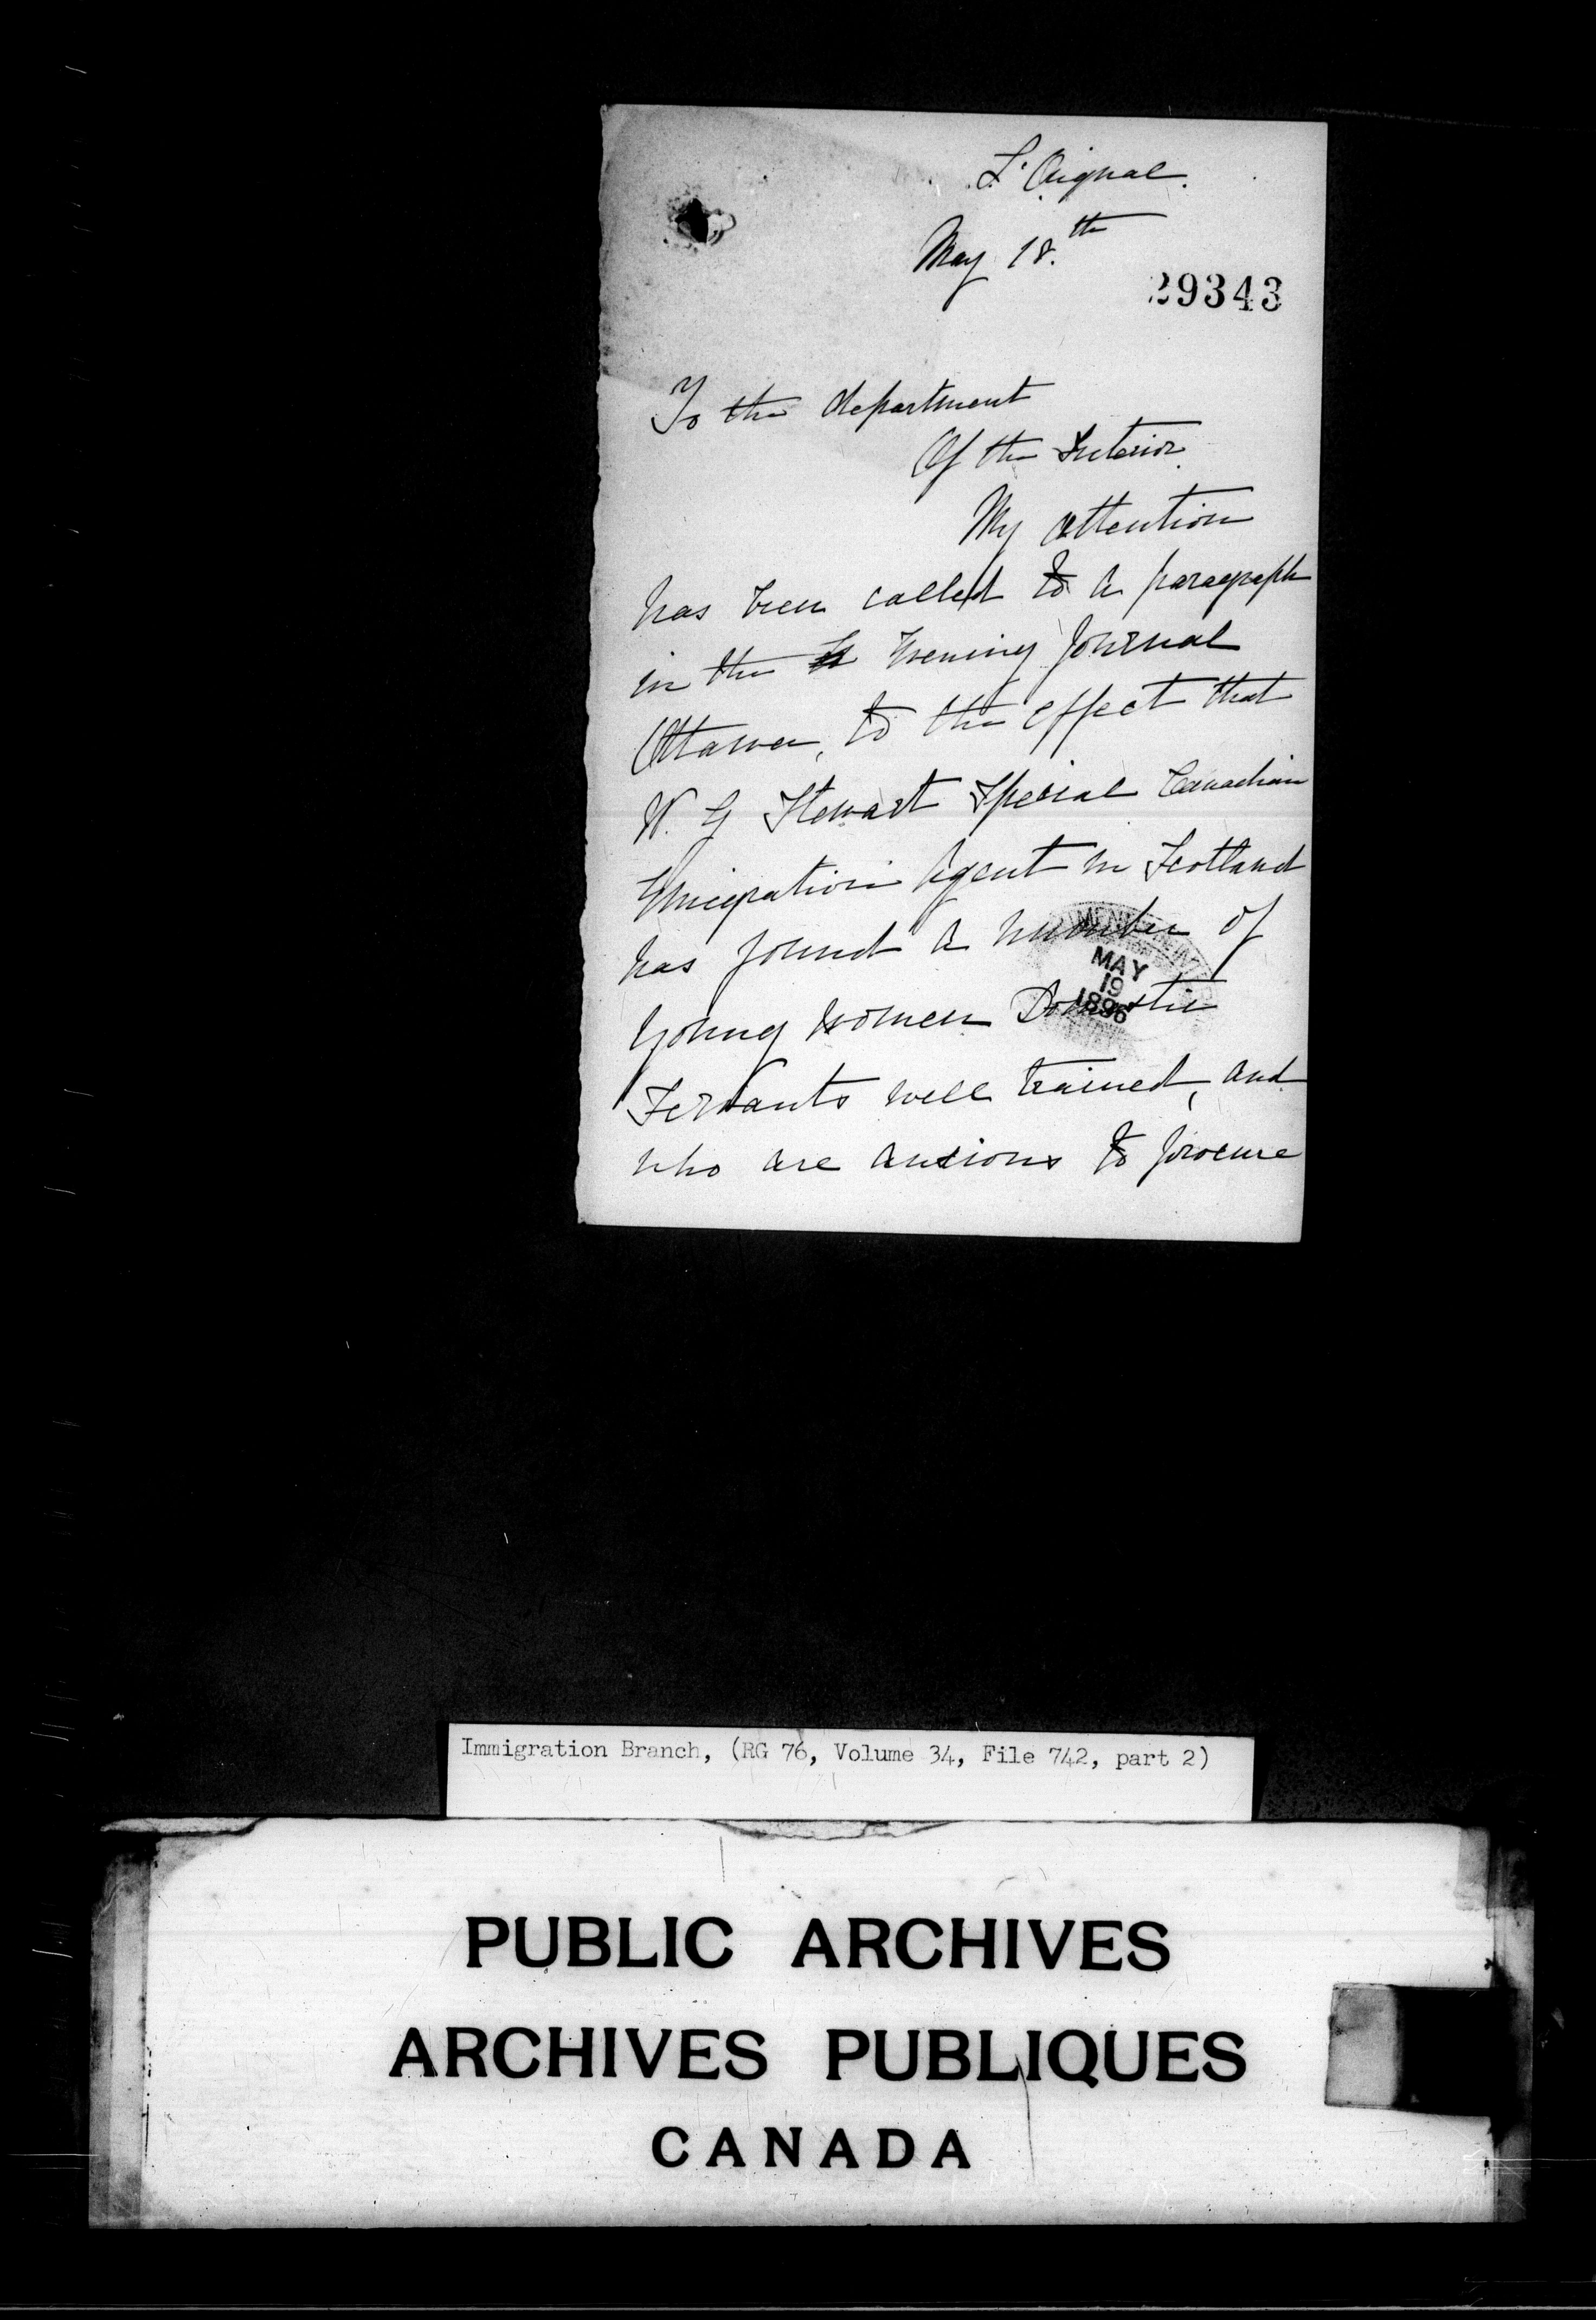 L'Orignal.
May 18.th
29343
To the department
Of the Interior.
My attention
has been called to a paragraph
in the Evening Journal
Ottawa, to the effect that
W. G Stewart Special Canadian
Emigration Agent in Scotland
has found a number of
young women Domestic
MAY
19
1896
Servants well trained, and
who are anxious to procure
Immigration Branch, (RG 76, Volume 34, File 742, part 2)
PUBLIC ARCHIVES
ARCHIVES PUBLIQUES
CANADA